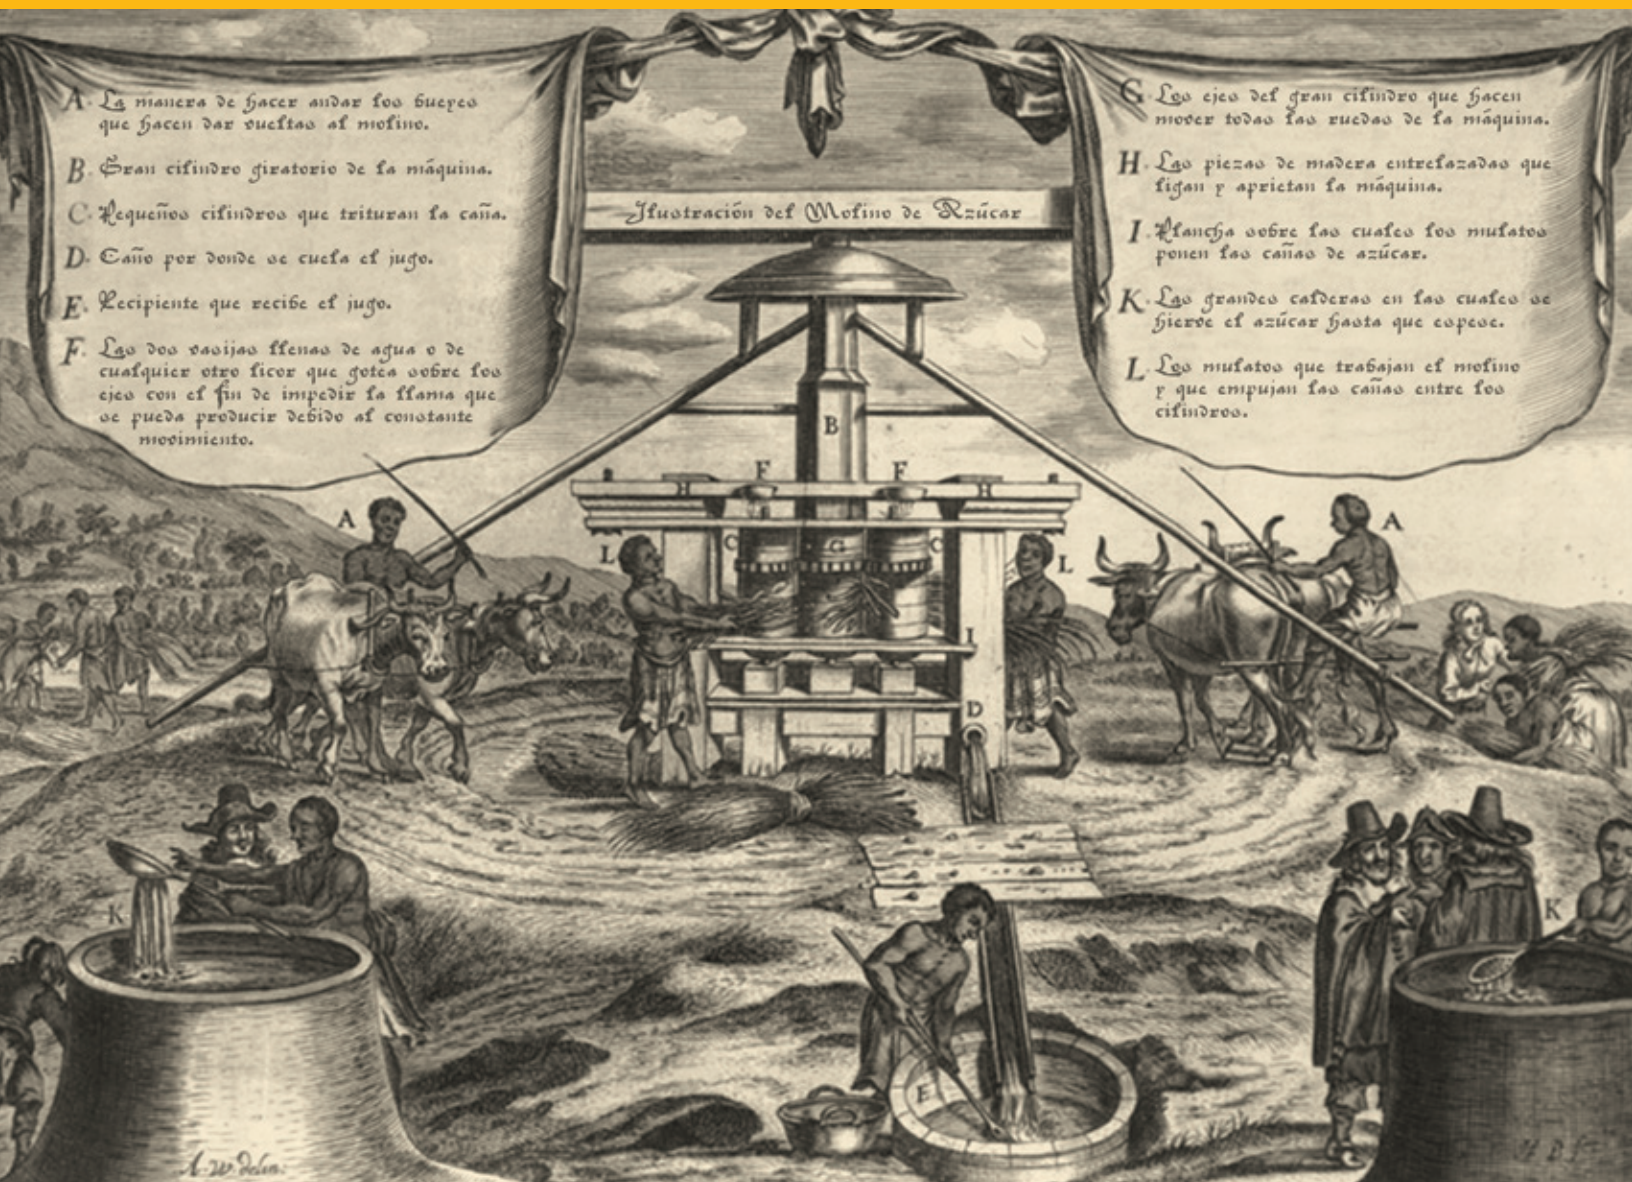 A. La manera de hacer andar los bueyes
que hacen dar vueltas al molino.
B. Gran cilindro giratorio de la máquina.
C. Pequeños cilindros que trituran la caña.
D. Caño por donde se cuela el jugo.
E. Recipiente que recibe el jugo.
F. Las dos vasijas llenas de agua o de
cualquier otro licor que gotea sobre los
ejes con el fin de impedir la llama que
se pueda producir debido al constante
movimiento.
Ilustración del Molino de Azúcar
G. Los ejes del gran cilindro que hacen
mover todas las ruedas de la máquina.
H. Las piezas de madera entrelazadas que
ligan y aprietan la máquina.
I. Plancha sobre las cuales los mulatos
ponen las cañas de azúcar.
K. Las grandes calderas en las cuales se
hierve el azúcar hasta que espese.
L. Los mulatos que trabajan el molino
y que empujan las cañas entre los
cilindros.
B
F F
H H
A A
L C G C L
I
D
K K
E
A. W. delin: